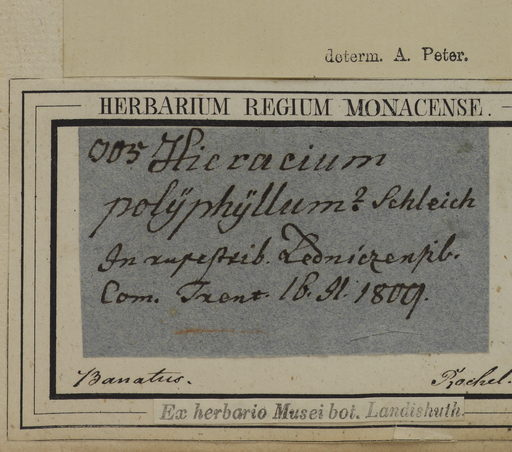 determ. A. Peter.
HERBARIUM REGIUM MONACENSE.
905 Hieracium
polÿphÿllum? Schleich
In rupestrib. Ledniczensib.
Com. Trent. 18. 9. 1809.
Banatus. Rochel.
Ex herbario Musei bot. Landishuth.